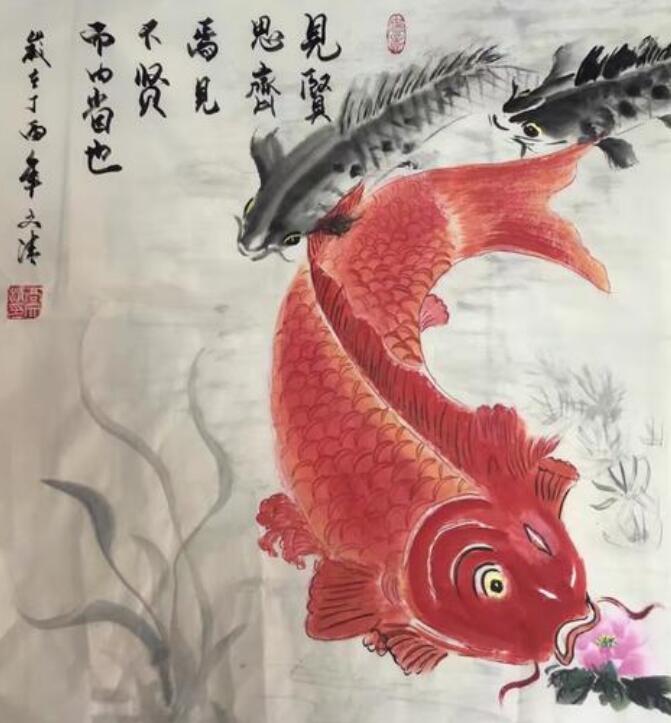 見賢
思齊
焉見
不賢
而内省也
歲在丁酉年文清